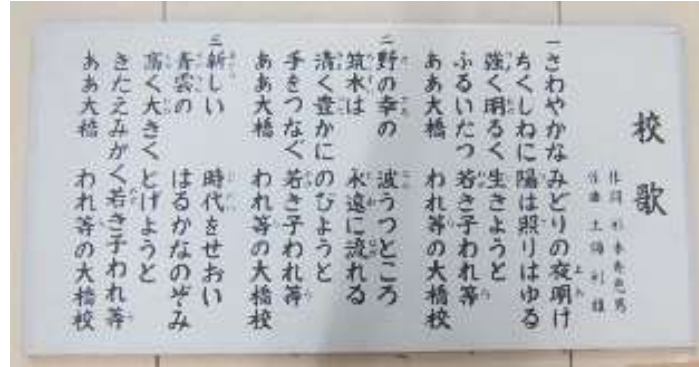 校歌
作詞
作曲
一 さわやかな みどりの夜明け
ちくしねに 陽は照りはゆる
強く明るく 生きようと
ふるいたつ 若き子われ等
ああ大橋 われ等の大橋校
二 野の幸の 波うつところ
筑水は 永遠に流れる
清く豊かに のびようと
手をつなぐ 若き子われ等
ああ大橋 われ等の大橋校
三 新しい 時代をせおい
青雲の はるかなのぞみ
高く大きく とげようと
きたえみがく 若き子われ等
ああ大橋 われ等の大橋校